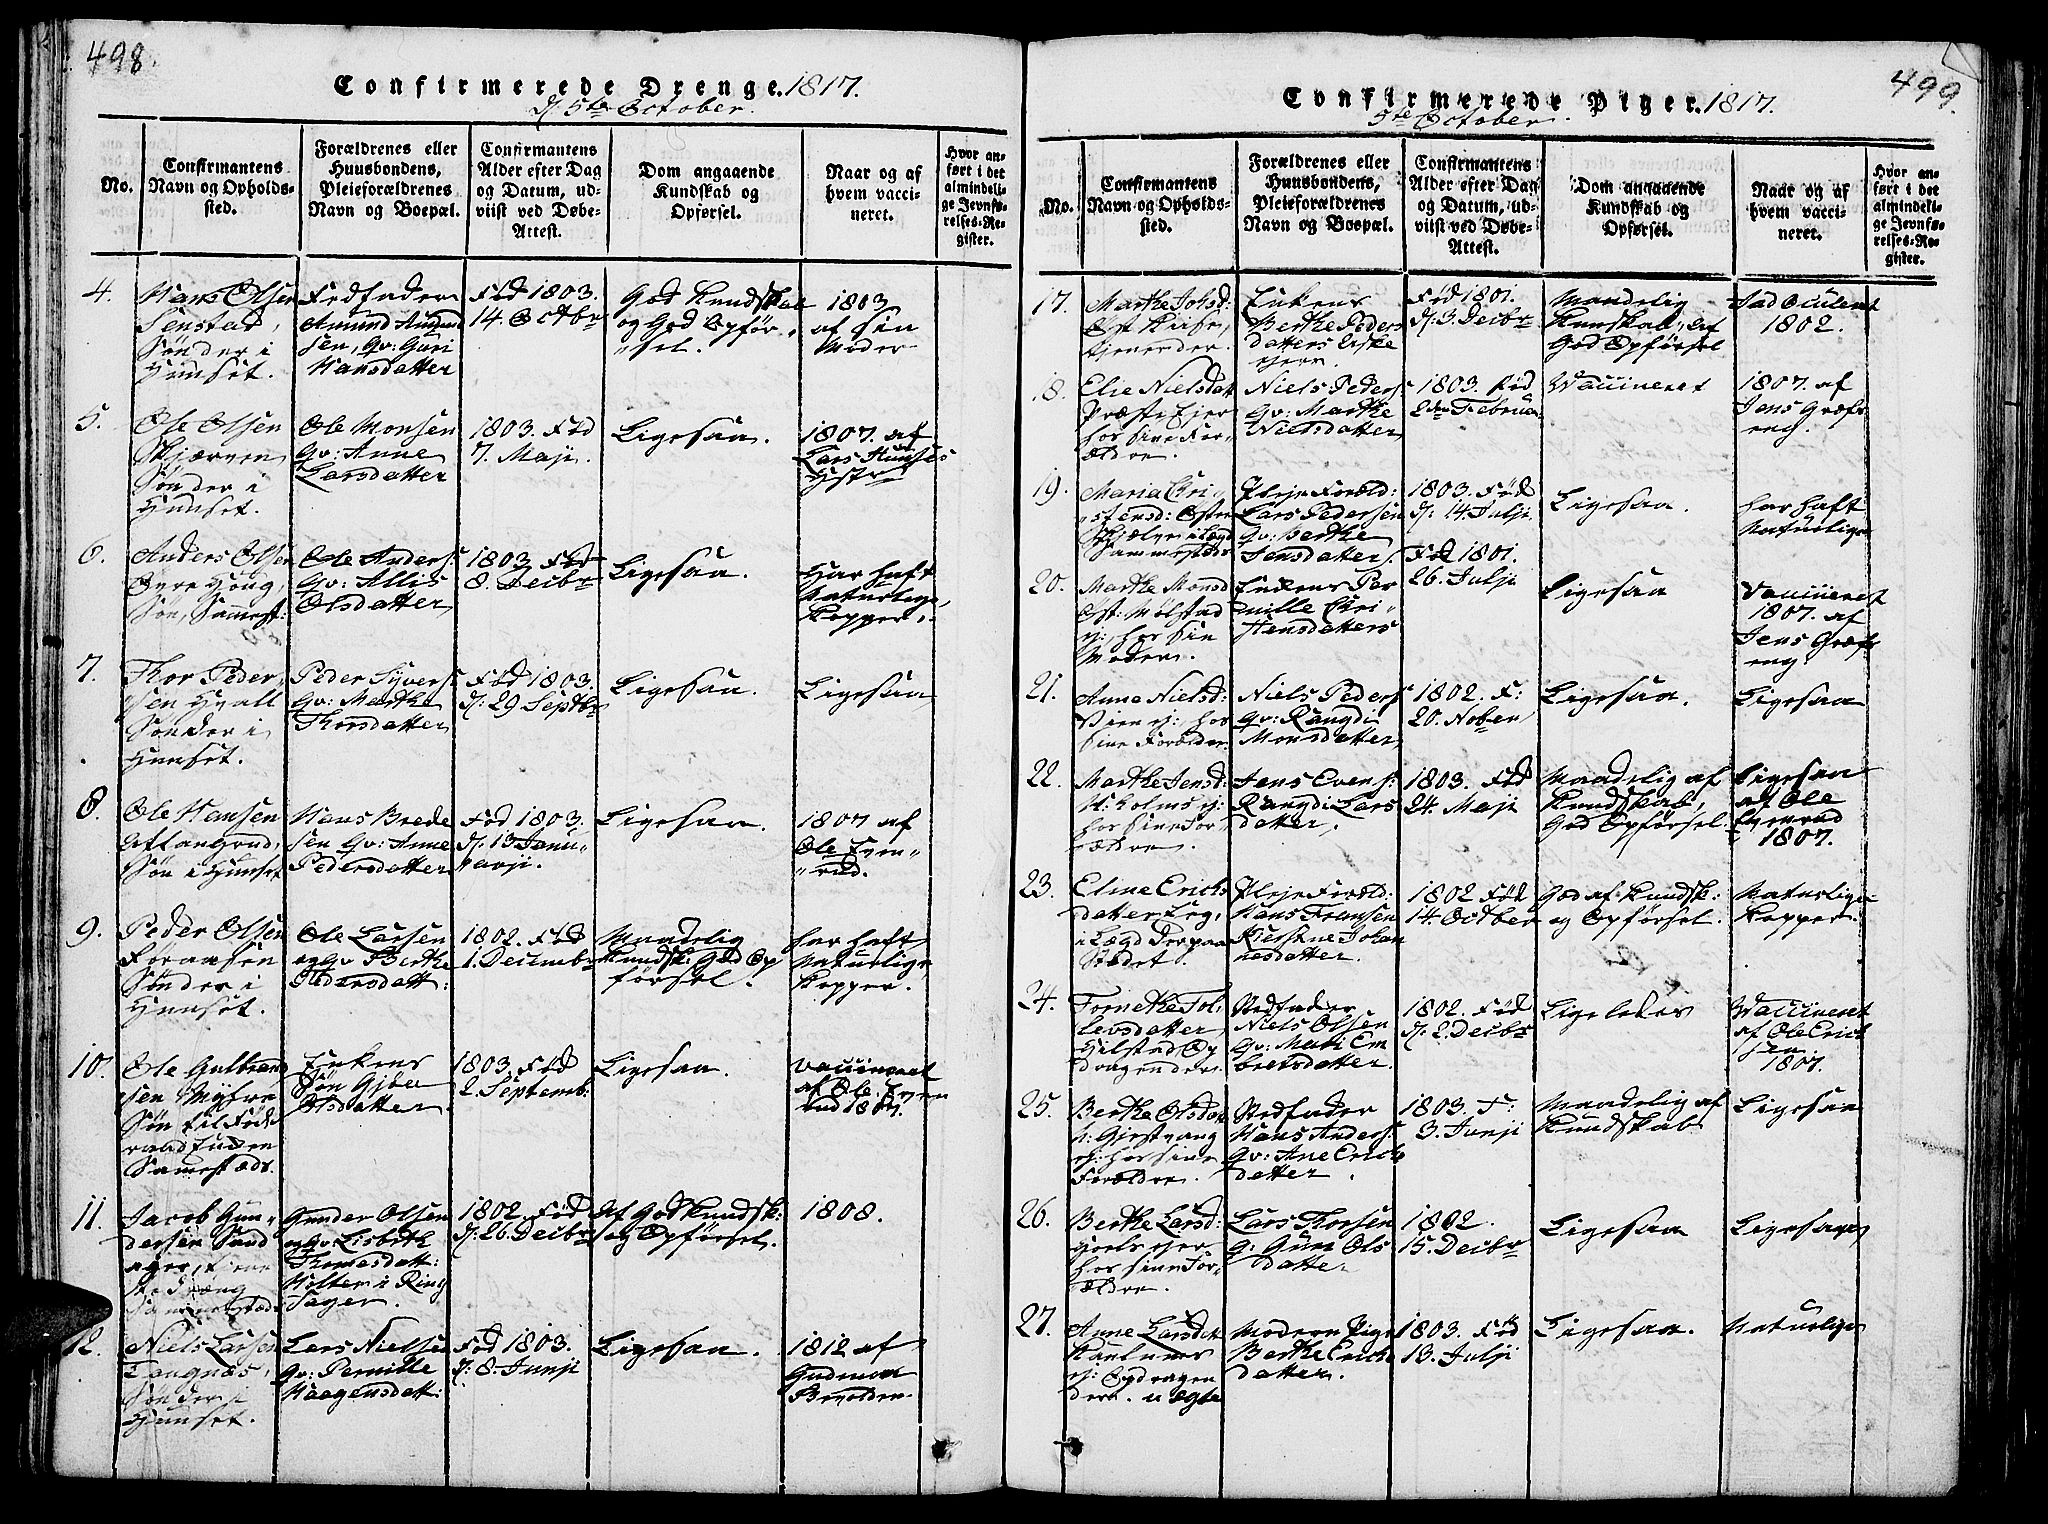 498.
Confirmerede Drenge. 1817.
d. 5te October.
No.
Confirmantens
Navn og Opholds-
sted.
Forældrenes eller
Huusbondens,
Pleieforældrenes
Navn og Boepæl.
Confirmantens
Alder efter Dag
og Datum, ud-
viist ved Døbe-
Attest.
Dom angaaende
Kundskab og
Opførsel.
Naar og af
hvem vacci-
neret.
Hvor an-
ført i det
almindeli-
ge Jevnfø-
relses-Re-
gister.
4.
Hans Olsen
Senstad,
Sønder i
Huuset.
Fedfader
Amund Amund
sen, Qv: Guri
Hansdatter
Fød 1803.
14. Octbr
God Kundskab
og God Opfør
sel.
1803
af sin
Moder
5.
Ole Olsen
Skjærven
Sønder i
Huuset.
Ole Monsen
Qv: Anne
Larsdatter
1803. Fød
7. Maji
Ligesaa.
1807. af
Lars Huuses
6.
Anders Olsen
Øvre Houg,
Søn, Sammest:
Ole Anders:
Qv: Allis
Olsdatter
1803 Fød
8. Decbr
Ligesaa.
Har haft
Naturlige
Kopper.
7.
Thor Peder
sen Hvall
Sønder i
Huuset.
Peder Syvers:
Qv: Marthe
Thorsdatter
Fød 1803.
d: 29 Septbr
Ligesaa.
Ligesaa
8.
Ole Hansen
Søn i Huuset
Hans Brede
sen Qv: Anne
Pedersdatter
Fød 1803.
d: 13 Janu
varji.
Ligesaa.
1807 af
Ole Even
rud.
9.
Peder Olsen
Foraasen
Sønder i
Huuset.
Ole Larsen
og Qv Berthe
Pedersdatt:
1802. Fød
1. Decembr
Maadelig
Kundsk: God Op
førsel.
har haft
Naturlige
Kopper.
10.
Ole Gulbrand
sen Myhre
Søn til
Enken
Samesteds
Enkens
Søn Gjber
Olsdatter.
1803. Fød
2. Septemb:
Ligesaa.
Vaccineret
af Ole Even
rud 1807.
11.
Jacob Gun
dersen Sand
ager,
Gunder Olsen
og Qv Lisbeth
Thomesdatt:
Holter i Ring
Sager.
1802. Fød
d: 26. Decbr
Af God Kundsk:
og Opførsel.
1808.
12.
Niels Larsen
Sønder i
Huuset.
Lars Nielsen
Qv: Pernille
Haagensdatt:
Fød 1803.
d: 8. Junji
Ligesaa.
1812 af
Gudmon
499.
Confirmerede Piger. 1817.
5te October.
No.
Confirmantens
Navn og Opholds-
sted.
Forældrenes eller
Huusbondens,
Pleieforældrenes
Navn og Boepæl.
Confirmantens
Alder efter Dag
og Datum, ud-
viist ved Døbe-
Attest.
Dom angaaende
Kundskab og
Opførsel.
Naar og af
hvem vacci-
neret.
Hvor an-
ført i det
almindeli-
ge Jevnfø-
relses-Re-
gister.
17.
Marthe Johsd:
tjenender.
Enkens
Berthe Peders
datters
Fød 1801.
d: 3. Decbr
Maadelig
Kunskab, af
God Opførsel
1802.
18.
Elie Nielsdat
hos sine For
ældre.
Niels Peders:
Qv: Marthe
Nielsdatter
1803. Fød
2den Februar
Vaccineret
1807. af
Jens Græfs
eng.
19.
Maria Cri
stensd: Østre
Sammesteds
Pleje Foræld:
Lars Pedersen
Qv: Berthe
Jensdatter.
1803. Fød
d: 14. Julji
Ligesaa.
har haft
Naturlige
20.
Marthe Monsd
Øst: Mølstad
hos sin
Moder.
Enkens Per
nille Cri
stensdatters
Fød 1801.
26. Julji
Ligesaa
Vaccineret
1807. af
Jens Græfs
eng
21.
Anne Nielsd:
hos
sine Forældre
Niels Peders:
Qv: Rangdi
Monsdatter
1802. F:
20. Nober
Ligesaa.
Ligesaa
22.
Marthe Jensd:
hos sine For
ældre.
Jens Evens:
Rangdi Lars
datter.
1803. Fød
24. Maji
Maadelig af
Kundskab,
God Opførsel.
Ligesaa
af Ole
Evenrud
1807.
23.
Eline Erichs
datter
i Lægd der paa
Stædet.
Pleje Foræld:
Hans Fransen
Kirstine Johan
nesdatter.
1802 Fød
14. October
God af Kundsk:
og Opførsel.
Naturlige
Kopper.
24.
levsdatter
Hilstad, Op
dragender.
Stedfader
Niels Olsen
Qv: Mari Em
bretsdatter.
1802. Fød
d: 2. Decbr
Ligeledes
Vaccineret
af Ole Erich
sen
1807.
25.
Berthe Olsdat
n: Gjestvang
hos sine
Forældre.
Stedfader
Hans Anders:
Qv: Ane Erichs
datter.
1803. F:
3. Junji
Maadelig af
Kundskab
Ligesaa
26.
Berthe Larsd:
hos sine For
ældre.
Lars Thorsen
Q: Guni Ols
datter
1802.
15. Decbr
Ligesaa
Ligesaa
27.
Anne Larsdat
Opdragen
der. uægte
Modern Pige
Berthe Erichs
datter.
1803. Fød
13. Julji
Ligesaa.
Naturlige